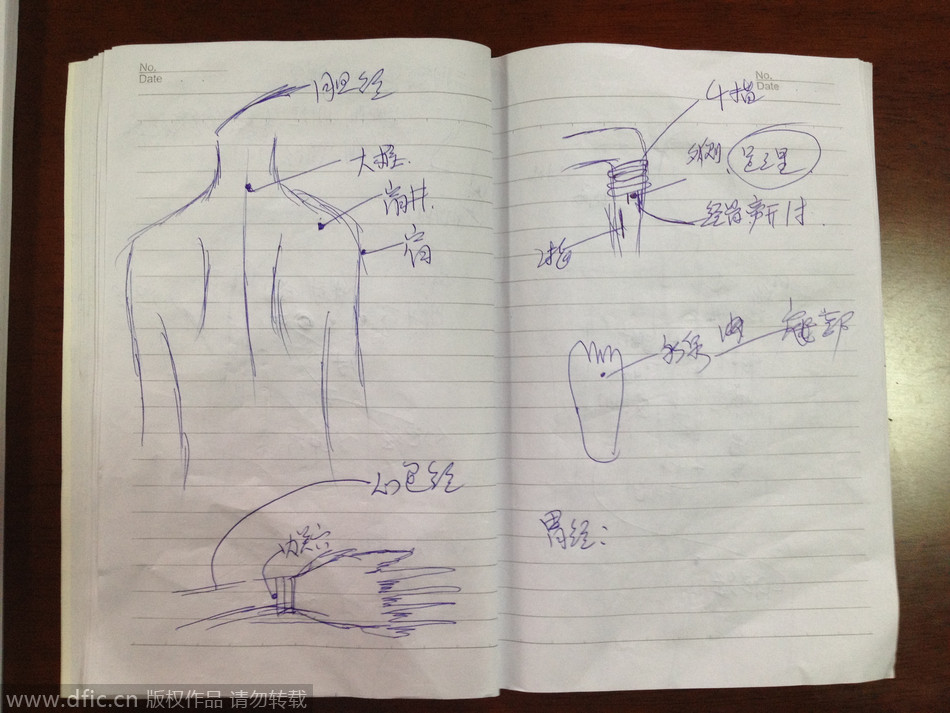 No.
Date
胆经
大椎.
肩井.
肩
心包经
内关穴
No.
Date
4指
外侧.
足三里
2指
胃经:
www.dfic.cn 版权作品 请勿转载